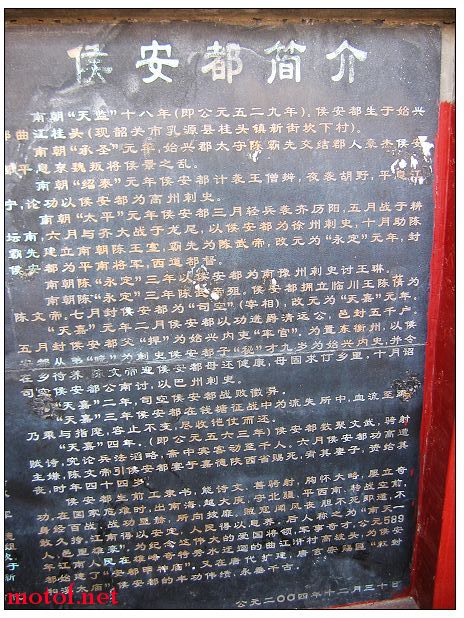 侯安都简介
南朝“天监”十八年(即公元五二九年)。侯安都生于始兴
郡曲江桂头(现韶关市乳源县桂头镇新街坎下村)。
南朝“承圣”元年,始兴郡太守陈霸先交结郡人章杰侯安
平息东魏叛将侯景之乱。
南朝“绍泰”元年侯安都计袭王僧辨,夜袭胡野,平息江
宁,论功以侯安都为高州刺史。
南朝“太平”元年侯安都三月轻兵袭齐历阳,五月战于耕
坛南,六月与齐大战于龙尾,以侯安都为徐州刺史,十月助陈
霸先建立南朝陈王室,霸先为陈武帝,改元为“永定”元年,封
侯安都为平南将军,西道都督。
南朝陈“永定”三年以侯安都为南豫州刺史讨王琳。
南朝陈“永定”三年陈武帝殂。侯安都拥立临川王陈蒨为
陈文帝。七月封侯安都为“司空”(宰相),改元为“天嘉”元年。
“天嘉”元年二月侯安都以功进爵清远公,邑封五千户
五月封侯安都父“捍”为始兴内史“车官”。为置东衡州,以侯
安都从弟“晓”为刺史侯安都子“秘”才九岁为始兴内史,并令
在乡待养 陈文帝迎侯安都母还健康,母固求仃乡里,十月诏
司空侯安都公南讨,以巴州刺史。
“天嘉”二年,司空侯安都战败徵异。
“天嘉”三年侯安都在钱塘征战中为流失所中,血流至踝
乃乘与指座,容止不变。尽收他仗而还。
“天嘉”四年,(即公元五六三年)侯安都数聚文武,骑射
赋诗,究论兵法滔略,斋中宾客动至千人。六月侯安都功高道
主嫌,陈文帝引侯安都宴于嘉德陕西省赐死,宥其妻子,旁给其
丧,时年四十四岁。
侯安都生前工隶书,能诗文,善骑射,胸怀大略,屡立奇
功,在国家危难时,出南海,战大庾,守北疆,平西南,特战空前,
身经百战,战功显赫,所向披靡,贼寇闻风丧胆不死即逃,不
敢久持,江南得以安定,人民得以息养,后人称之为“南天一
人,邑里雄豪”。为纪念这伟大的爱国将领,军事奇才,公元589
年江南人民在雄峰奇特秀水迂迴的曲江浒村高坡头,为侯安
都始建了“安都甲神庙”。又在唐代扩建,唐玄宗赐匾“敕封
侯安都的丰功伟绩,永垂千古。
公元二00四年十二月三十日
motol.net